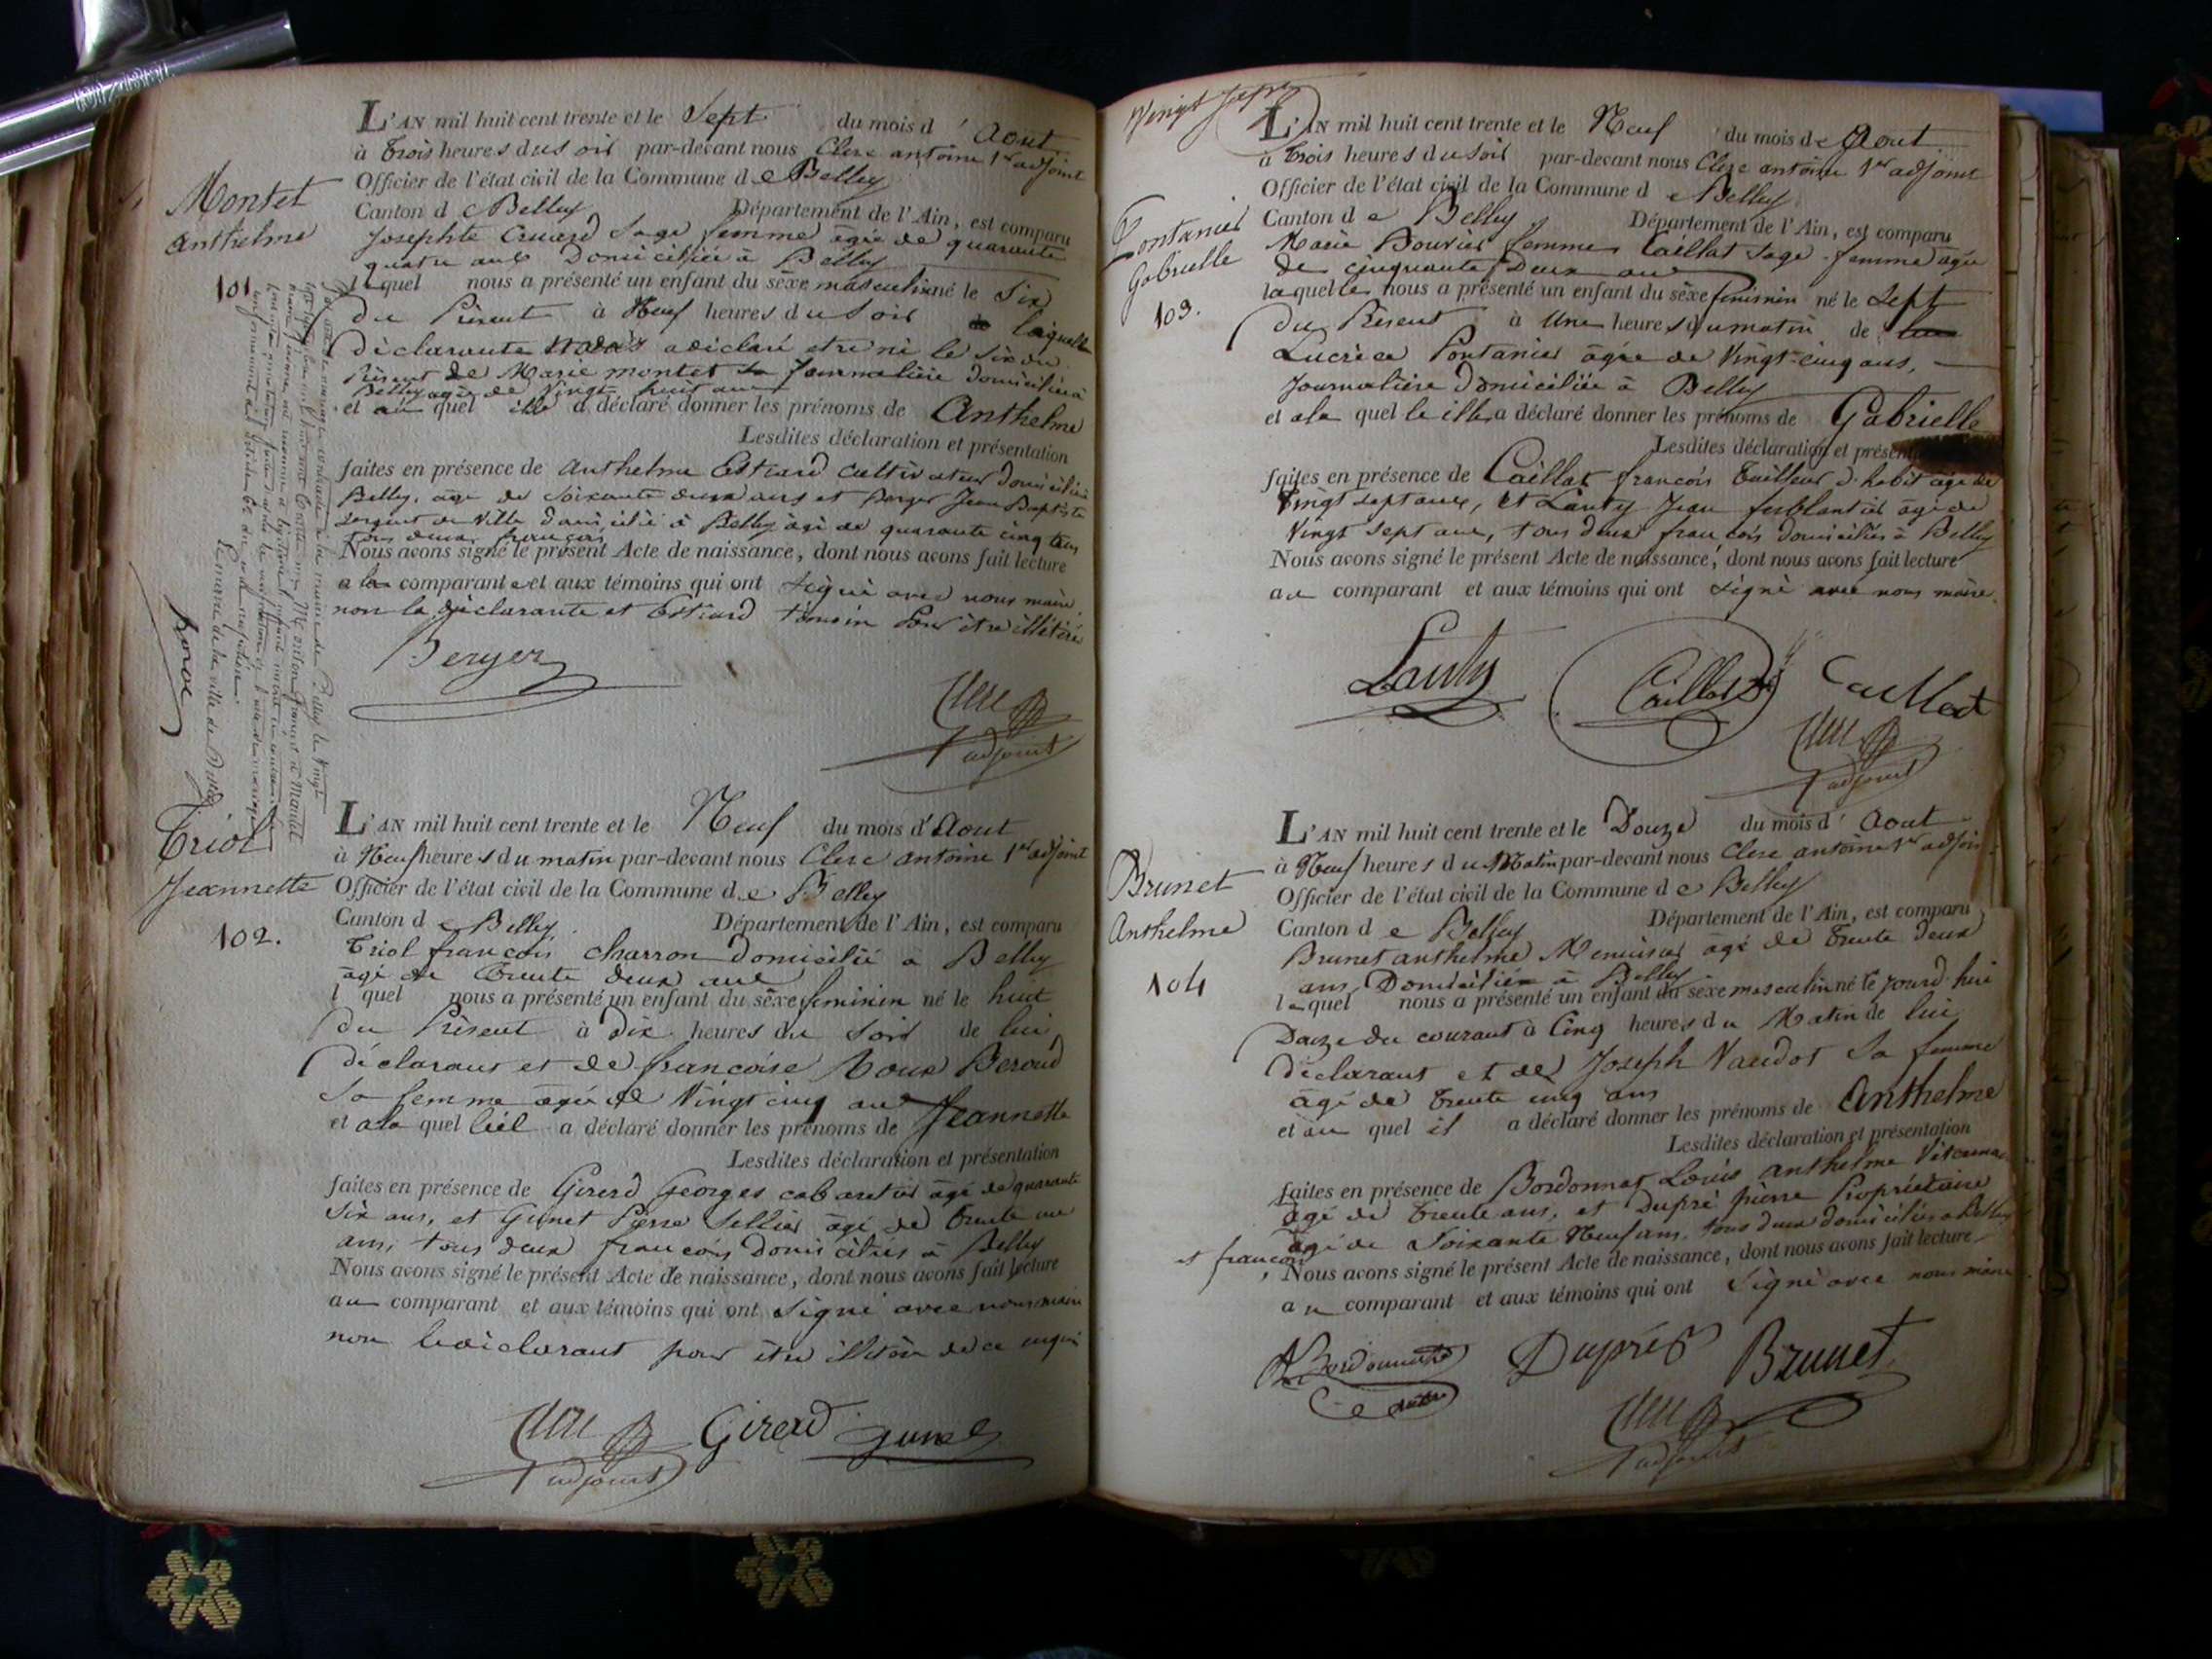 L'AN mil huit cent trente et le Sept du mois d'Aout
à Trois heures du soir par-devant nous Clerc antoine 1er adjoint
Officier de l'état civil de la Commune de Belley
Canton de Belley Département de l'Ain, est comparu
Josephte Cuierd Sage femme âgée de quarante
quatre ans Domiciliée à Belley
lequel nous a présenté un enfant du sèxe masculin né le Six
Du Présent à Neuf heures du Soir de laquelle
Déclarante a déclaré etre né le Six du
Présent de Marie Montet Journalière domiciliée à
Belley agée de Vingt huit ans
et au quel elle a déclaré donner les prénoms de Anthelme
Lesdites déclaration et présentation
faites en présence de Anthelme Estrard Cultivateur Domicilié à
Belley, age de Soixante deux ans et Berger Jean Baptiste
Sergent de Ville domicilié à Belley âgé de quarante cinq ans
tous deux français
Nous avons signé le présent Acte de naissance, dont nous avons fait lecture
a la comparante et aux témoins qui ont Signé avec nous maire
non la déclarante et Estrard témoin Pour être illétéré
Berger
Clerc
adjoint
Montet
Anthelme
101
Le maire de la ville de Belley
L'AN mil huit cent trente et le Neuf du mois d'Aout
à Neuf heures du matin par-devant nous Clerc antoine 1er adjoint
Officier de l'état civil de la Commune de Belley
Canton de Belley Département de l'Ain, est comparu
Triol françois charron domicilié à Belley
âgé de Trente deux ans
l quel nous a présenté un enfant du sèxe feminin né le huit
Du Présent à Dix heures du Soir de lui
Déclarant et de françoise Roux Beroud
Sa femme agée de Vingt cinq ans
et a la quel il a déclaré donner les prénoms de Jeannette
Lesdites déclaration et présentation
faites en présence de Girerd Georges cabaretier âgé de quarante
Six ans, et Gunet Pierre Sellier âgé de Trente un
ans, tous deux françois Domiciliés à Belley
Nous avons signé le présent Acte de naissance, dont nous avons fait lecture
au comparant et aux témoins qui ont Signé avec nous maire
non le déclarant pour être illétéré de ce requis
Clerc Girerd Gunet
adjoint
Triol
Jeannette
102.
Vingt Sept
L'AN mil huit cent trente et le Neuf du mois de Aout
à Trois heures du soir par-devant nous Clerc antoine 1er adjoint
Officier de l'état civil de la Commune de Belley
Canton de Belley Département de l'Ain, est comparu
Marie Bouvier femme Caillat Sage-femme agée
de cinquante Deux ans
laquelle nous a présenté un enfant du sèxe feminin né le Sept
Du Présent à Une heures du matin de
Lucrèce Pontanier âgée de Vingt-cinq ans,
Journalière Domiciliée à Belley
et a la quelle elle a déclaré donner les prénoms de Gabrielle
Lesdites déclaration et présen
faites en présence de Caillat françois Tailleur d'habit âgé de
Vingt Sept ans, et Lauty Jean ferblantier âgé de
Vingt Sept ans, tous deux françois domiciliés à Belley
Nous avons signé le présent Acte de naissance, dont nous avons fait lecture
au comparant et aux témoins qui ont Signé avec nous maire.
Lauty Caillat Caillat
Clerc
adjoint
Pontanier
Gabrielle
103.
L'AN mil huit cent trente et le Douze du mois d'Aout
à Neuf heures du Matin par-devant nous Clerc antoine 1er adjoin
Officier de l'état civil de la Commune de Belley
Canton de Belley Département de l'Ain, est comparu
Brunet anthelme Menuisier âgé de Trente Deux
ans Domicilié à Belley
lequel nous a présenté un enfant du sèxe masculin né le jourd'hui
Douze du courant à Cinq heures du Matin de lui
Déclarant et de Joseph Naudot Sa femme
âgé de Trente cinq ans
et au quel il a déclaré donner les prénoms de Anthelme
Lesdites déclaration et présentation
faites en présence de Bordonnat Louis Anthelme
âgé de Trente ans, et Dupré pierre Propriétaire
âgé de Soixante Neuf ans, tous deux domiciliés à Belley
et françois
Nous avons signé le présent Acte de naissance, dont nous avons fait lecture
au comparant et aux témoins qui ont Signé avec nous maire
Bordonnat Dupré Brunet
Clerc
adjoint
Brunet
Anthelme
104